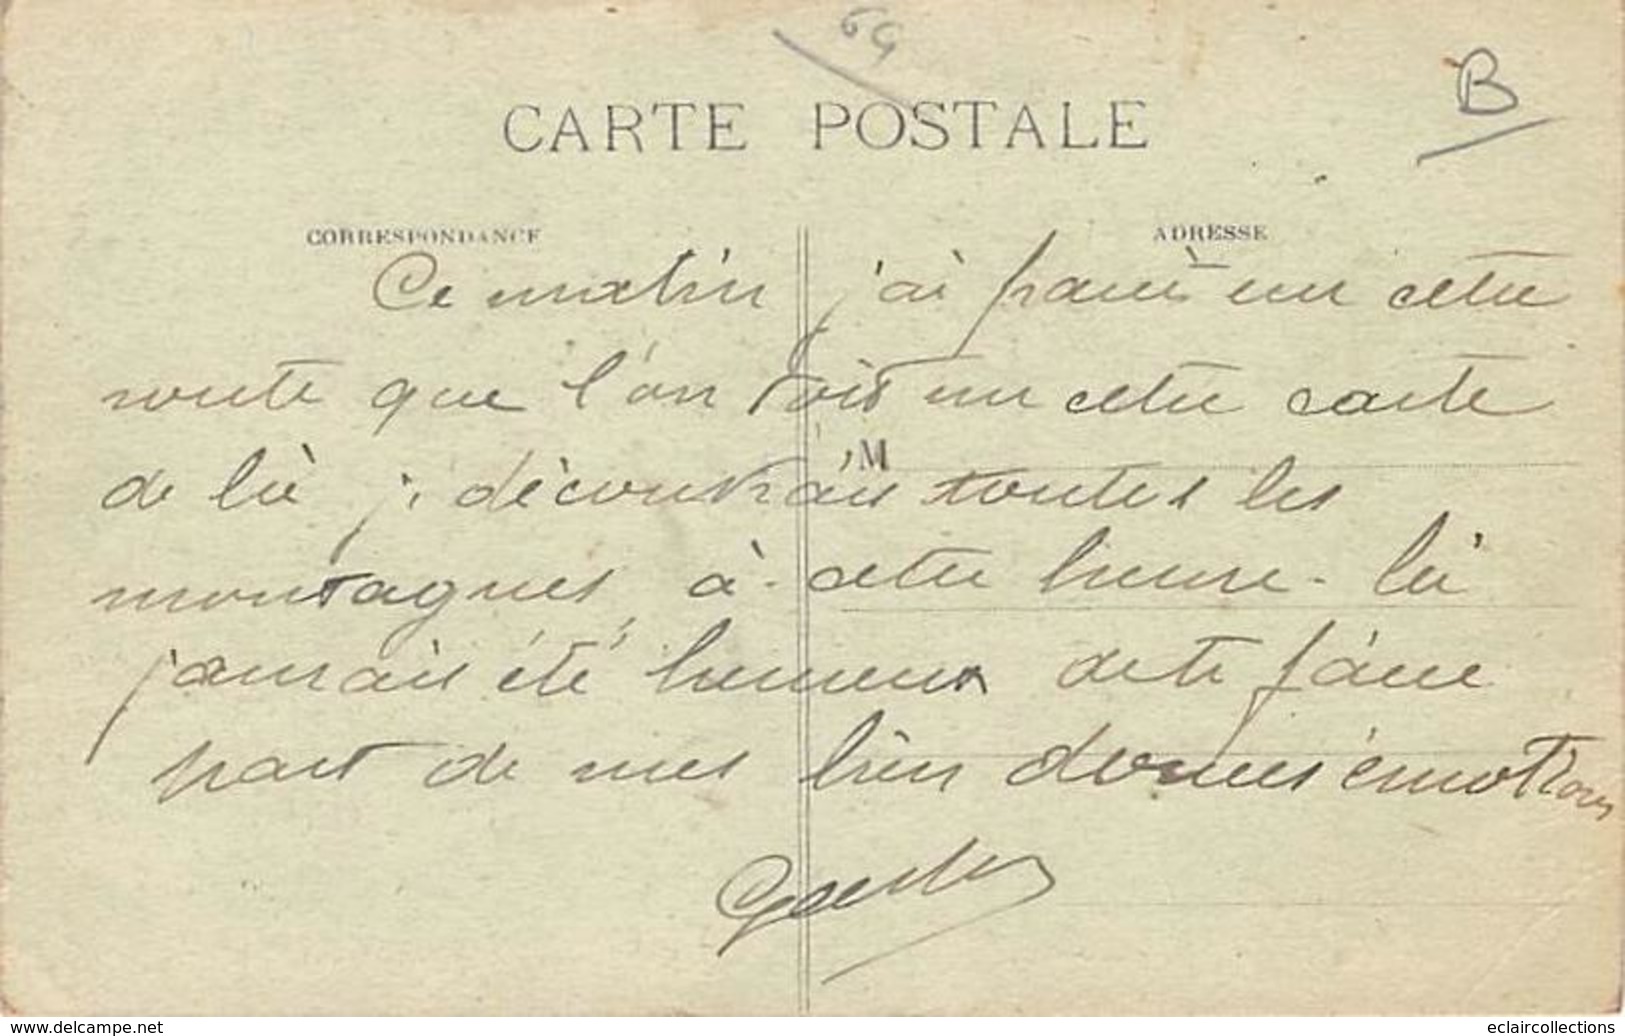 64
B
CARTE POSTALE
CORRESPONDANCE
ADRESSE
Ce matin j'ai passé sur cette
route que l'on voit sur cette carte
de là je découvrais toutes les
M
montagnes, à cette heure-là
j'aurais été heureux de te faire
part de mes bien douces émotions
www.delcampe.net
eclaircollections